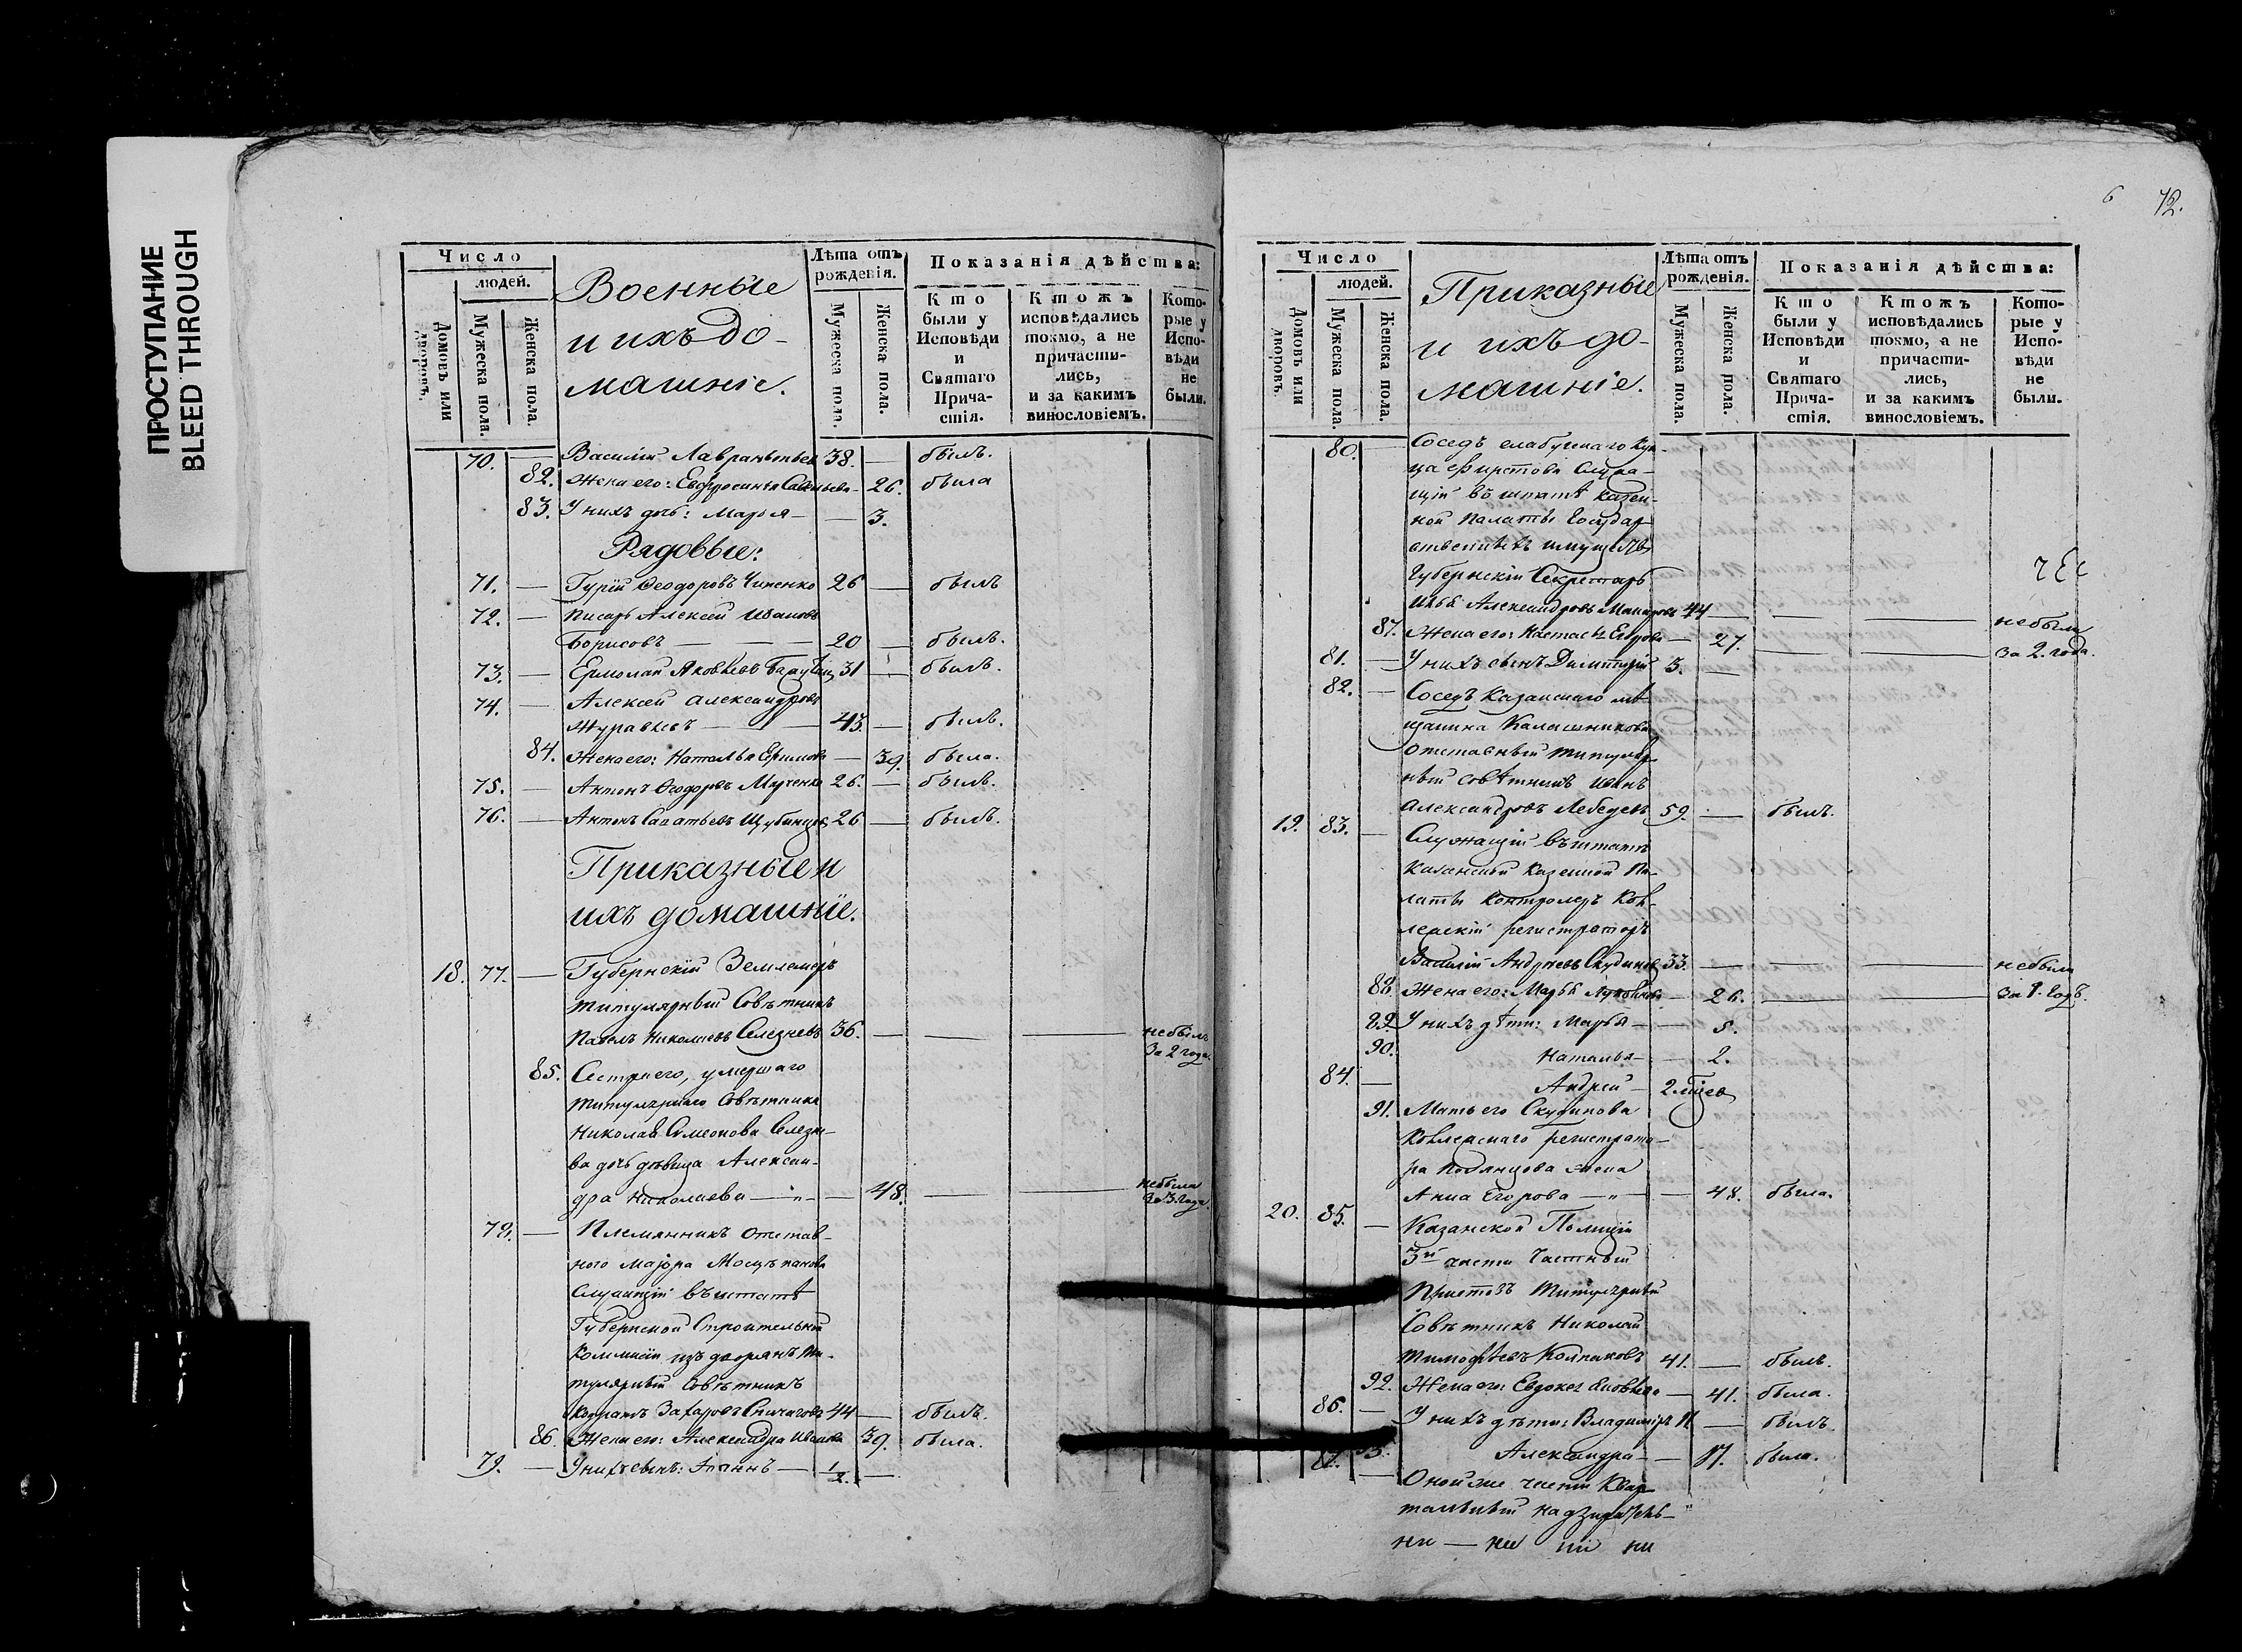 ПРОСТУПАНИЕ
BLEED THROUGH
Число
людей.
Домовъ или дворовъ.
Мужеска пола.
Женска пола.
Военные
и ихъ до-
машніе.
Лѣта отъ
рожденія.
Мужеска пола.
Женска пола.
Показанія дѣйства:
Кто
были у
Исповѣди
и
Святаго
Прича-
стія.
Ктожъ
исповѣдались
токмо, а не
причасти-
лись,
и за какимъ
винословіемъ.
Кото-
рые у
Испо-
вѣди
не
были.
70. — Василій Лаврентьевъ 38. — былъ.
82. Жена его: Евфросинья Савельева — 26. была
83. У нихъ дочь: Марья — — 3.
Рядовые:
71. — Гурій Ѳеодоровъ 26 — былъ
72. — Писарь Алексей Ивановъ
Борисовъ — — 20 — былъ.
73. — Ермолай Яковлевъ 31 — былъ.
74. — Алексей Александровъ
Журавлевъ — — 43. — былъ.
84. Жена его: Наталья Ефимова — 39. была.
75. — Антонъ Ѳеодоровъ Марченко 26. — былъ.
76. — Антонъ 26 — былъ.
Приказные и
ихъ домашніе.
18. 77. — Губернскій Землемеръ
Титулярный Совѣтникъ
Павелъ Николаевъ Селезневъ 36. — — — небылъ
за 2 года.
85. Сестра его, умершаго
Титулярнаго Совѣтника
Николая Симеонова Селезне-
ва дочь девица Алексан-
дра Николаева — „ — — 48. — — небыла
за 3. года.
78. — Племянникъ отстав-
ного маіора
Служащій въ штатѣ
Губернской Строительной
Коммисіи изъ дворянъ Ти-
тулярный Совѣтникъ
Захаровъ 44 — былъ.
86. Жена его: Александра Иванова 39. была.
79. — У нихъ сынъ: Іоаннъ — 1/2. —
6 72.
Число
людей.
Домовъ или дворовъ.
Мужеска пола.
Женска пола.
Приказные
и ихъ до-
машніе.
Лѣта отъ
рожденія.
Мужеска пола.
Женска пола.
Показанія дѣйства:
Кто
были у
Исповѣди
и
Святаго
Прича-
стія.
Ктожъ
исповѣдались
токмо, а не
причасти-
лись,
и за какимъ
винословіемъ.
Кото-
рые у
Испо-
вѣди
не
были.
80. — Соседъ елабугскаго куп-
ца Фирстова Служа-
щій въ штатѣ казен-
ной палаты Государ-
ственныхъ имуществъ
Губернскій Секретарь
Илья Александровъ Макаровъ 44 — — —
87. Жена его: Настасья Егорова — 27. — — небыли
за 2. года.
81. — У нихъ сынъ Димитрій 3. —
82. — Соседъ Казанскаго мѣ-
щанина Калашникова
отставный титуляр-
ный совѣтникъ Иванъ
Александровъ Лебедевъ 59. — былъ.
19. 83. — Служащій въ штатѣ
Казанской Казенной Па-
латы Контролеръ Кол-
лежскій регистраторъ
Василій Андреевъ Скудиновъ 33. — — — небыли
88. Жена его: Марья — 26. — — за 1. годъ.
89. У нихъ дѣти: Марья — — 5.
90. Наталья — — 2.
84. — Андрей — 2 мѣсец
91. Мать его Скудинова
Коллежскаго регистрато-
ра жена
Анна Егорова — „ — — 48. была.
20. 85. — Казанской Полиціи
3й части Частный
Приставъ Титулярный
Совѣтникъ Николай
Тимофѣевъ Колпаковъ 41. — былъ.
92. Жена его: Евдокея — 41. была.
86. — У нихъ дѣти: Владимиръ 11 — былъ.
93. Александра — — 17. была.
87. — Оной же части Квар-
тальный надзиратель